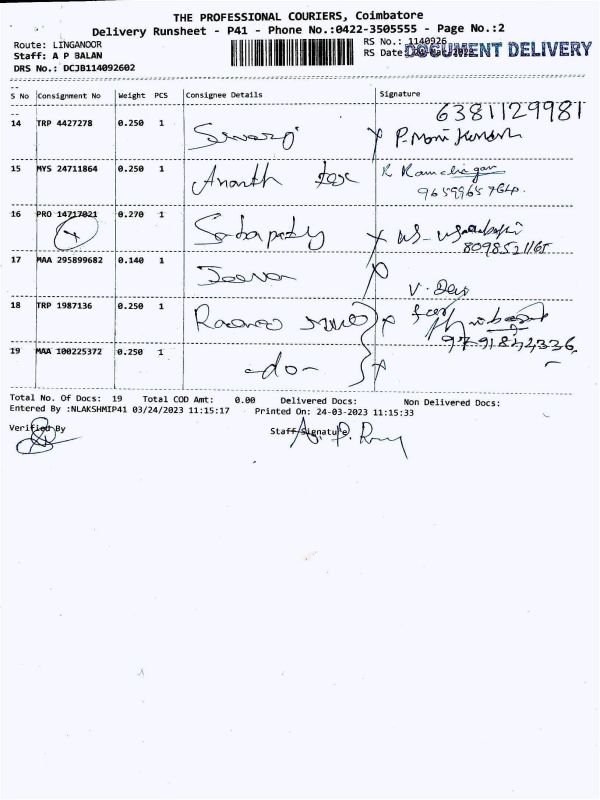 THE PROFESSIONAL COURIERS, Coimbatore
Delivery Runsheet - P41 - Phone No.:0422-3505555 - Page No.:2
Route: LINGANOOR
Staff: A P BALAN
DRS No.: DCJB114092602
RS No.: 1140926
RS Date:
DOCUMENT DELIVERY
S No Consignment No Weight PCS Consignee Details Signature
6381129981
14 TRP 4427278 0.250 1
15 MYS 24711864 0.250 1 Ananth tex
16 PRO 14717021 0.270 1
8098521165
17 MAA 295899682 0.140 1 Jeeva
18 TRP 1987136 0.250 1
9791842336
19 MAA 100225372 0.250 1 -do-
Total No. Of Docs: 19 Total COD Amt: 0.00 Delivered Docs: Non Delivered Docs:
Entered By :NLAKSHMIP41 03/24/2023 11:15:17 Printed On: 24-03-2023 11:15:33
Verified By Staff Signature